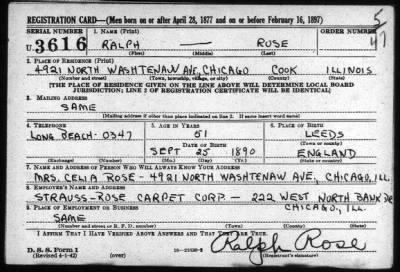 REGISTRATION CARD—(Men born on or after April 28, 1877 and on or before February 16, 1897)
SERIAL NUMBER 1. NAME (Print) ORDER NUMBER
U 3616 RALPH — ROSE
(First) (Middle) (Last)
2. PLACE OF RESIDENCE (Print)
4921 NORTH WASHTENAW AVE, CHICAGO COOK ILLINOIS
(Number and street) (Town, township, village, or city) (County) (State)
[THE PLACE OF RESIDENCE GIVEN ON THE LINE ABOVE WILL DETERMINE LOCAL BOARD
JURISDICTION; LINE 2 OF REGISTRATION CERTIFICATE WILL BE IDENTICAL]
3. MAILING ADDRESS
SAME
[Mailing address if other than place indicated on line 2. If same insert word same]
4. TELEPHONE 5. AGE IN YEARS 6. PLACE OF BIRTH
51 LEEDS
LONG BEACH-0347 DATE OF BIRTH (Town or county)
SEPT 25 1890 ENGLAND
(Exchange) (Number) (Mo.) (Day) (Yr.) (State or country)
7. NAME AND ADDRESS OF PERSON WHO WILL ALWAYS KNOW YOUR ADDRESS
MRS. CELIA ROSE - 4921 NORTH WASHTENAW AVE., CHICAGO, ILL.
8. EMPLOYER'S NAME AND ADDRESS
STRAUSS-ROSE CARPET CORP. — 222 WEST NORTH BANK DR
9. PLACE OF EMPLOYMENT OR BUSINESS CHICAGO, ILL.
SAME
(Number and street or R. F. D. number) (Town) (County) (State)
I AFFIRM THAT I HAVE VERIFIED ABOVE ANSWERS AND THAT THEY ARE TRUE.
Ralph Rose
D. S. S. Form 1
(Revised 4-1-42) (over) (Registrant's signature)